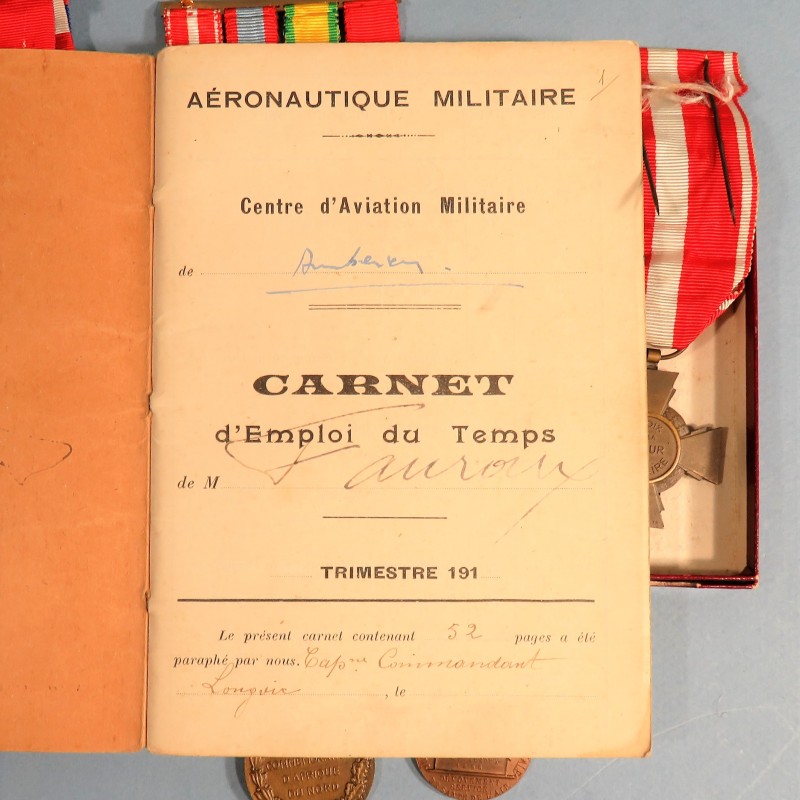 1
AÉRONAUTIQUE MILITAIRE
Centre d'Aviation Militaire
de Ambérieu.
CARNET
d'Emploi du Temps
de M Fauroux
TRIMESTRE 191
Le présent carnet contenant 52 pages a été
paraphé par nous. Capne Commandant
Longvic , le
D'AFRIQUE
DU NORD